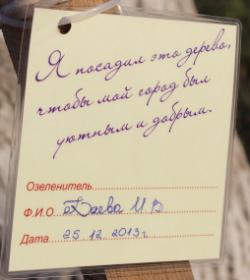 Я посадил это дерево,
чтобы мой город был
уютным и добрым.
Озеленитель
Ф.И.О. И В
Дата 25 12 2013г